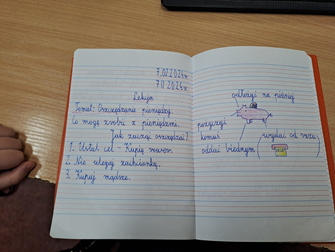 7.02.2024r.
7.02.2024r.
Lekcja
Temat: Oszczędzanie pieniędzy.
Co mogę zrobić z pieniędzmi.
Jak zacząć oszczędzać?
1. Ustal cel - Kupię rower.
2. Nie ulegaj zachciankom.
3. Kupuj mądrze.
odłożyć na później
pożyczyć
komuś
oddać biednym
wydać od razu